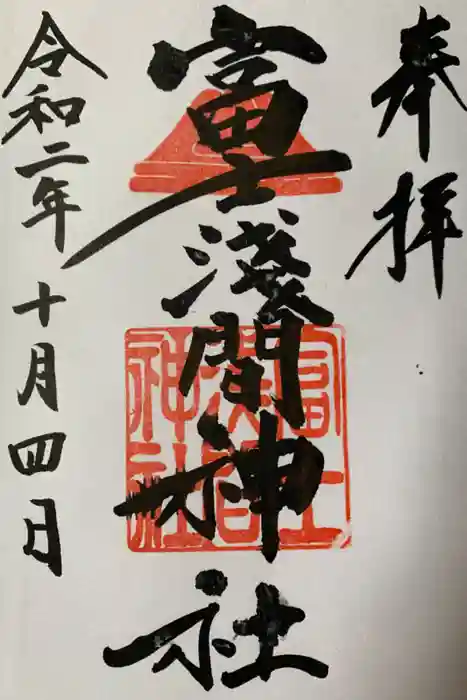 奉拝
富士淺間神社
富士浅間神社
令和二年十月四日